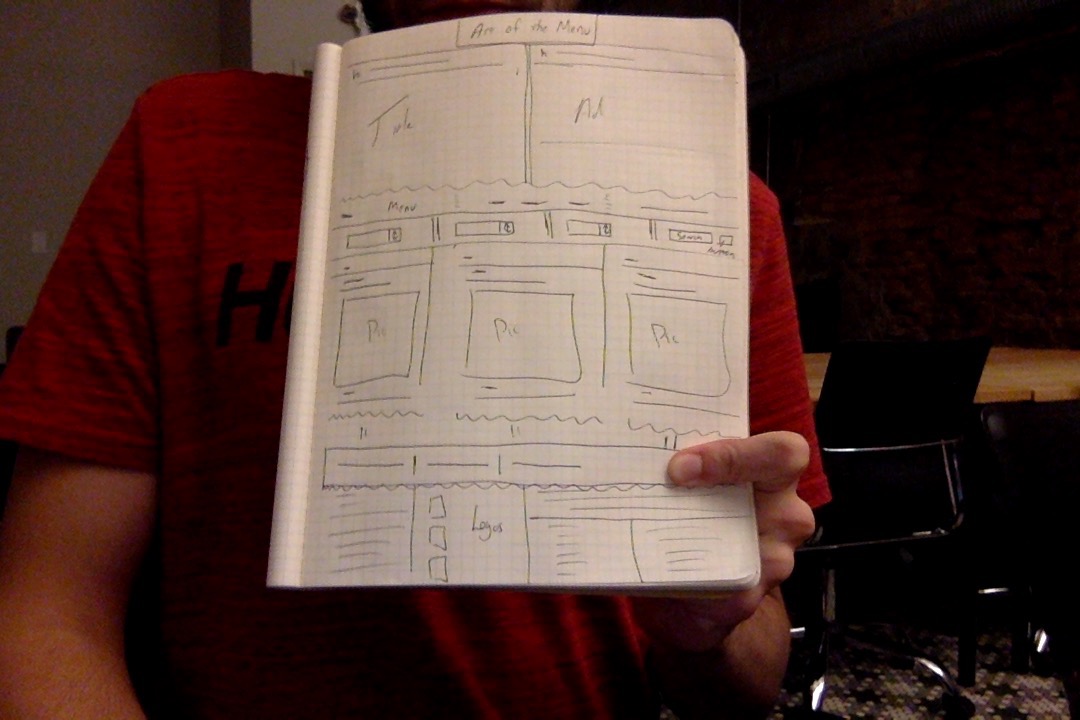 Art of the Menu
Title
Ad
Menu
Search
Pic
Pic
Pic
Logos
H